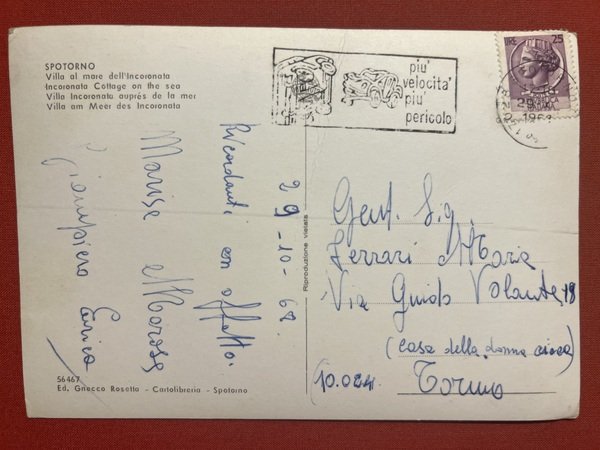 SPOTORNO
Villa al mare dell'Incoronata
Incoronata Cottage on the sea
Villa Incoronata auprès de la mer
Villa am Meer des Incoronata
più'
velocita'
più'
pericolo
LIRE 25
29
1968
29-10-68
Ricordanti con affetto.
Marisa e
Giampiero Enrico
Riproduzione vietata
Gent. Sig.
Ferrari Maria
Via Guido Volante, 18
(casa della donna cieca)
(10.024) Torino
56467
Ed. Gnecco Rosetta - Cartolibreria - Spotorno